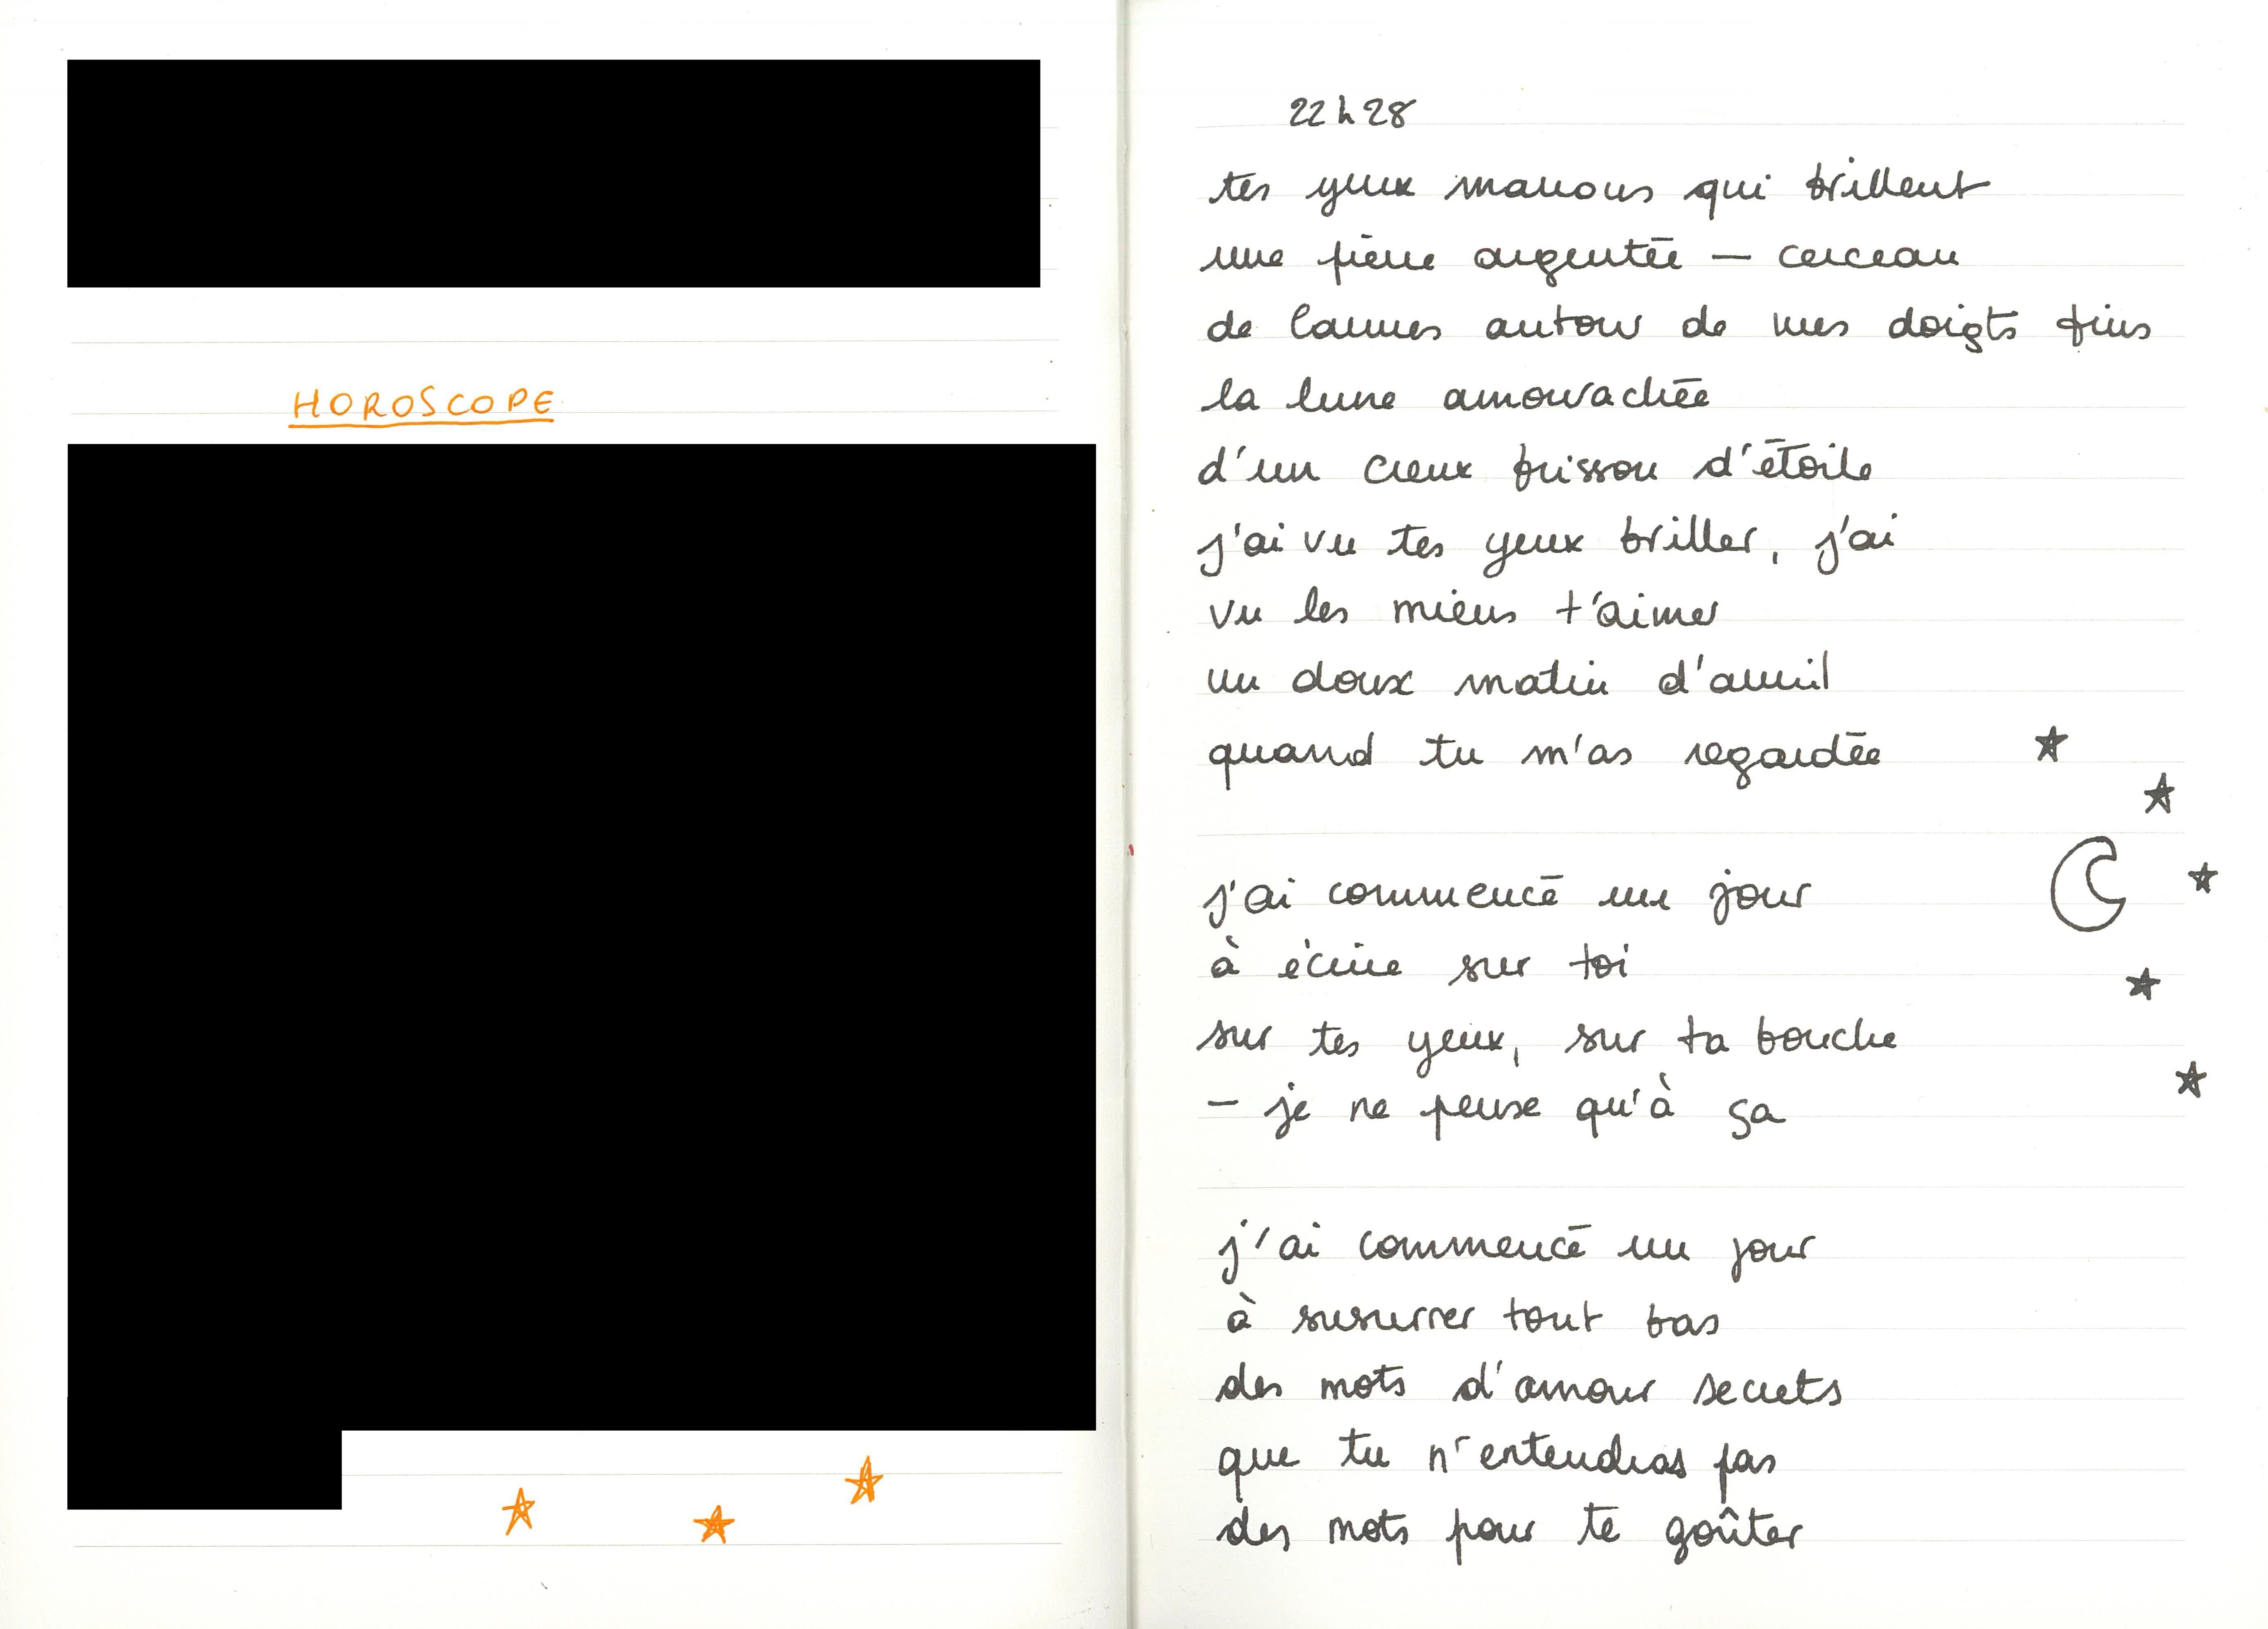 HOROSCOPE
22h28
tes yeux marrons qui brillent
une pierre argentée — cerceau
de larmes autour de mes doigts fins
la lune amourachée
d'un creux frisson d'étoile
j'ai vu tes yeux briller, j'ai
vu les miens t'aimer
un doux matin d'avril
quand tu m'as regardée
j'ai commencé un jour
à écrire sur toi
sur tes yeux, sur ta bouche
– je ne pense qu'à ça
j'ai commencé un jour
à susurrer tout bas
des mots d'amour secrets
que tu n'entendras pas
des mots pour te goûter